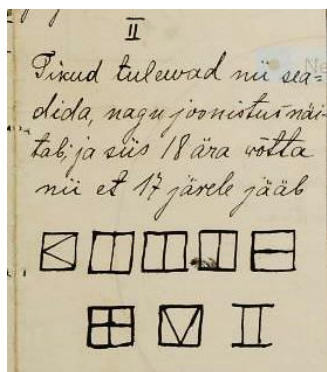 II
Tikud tulewad nii sea=
dida, nagu joonistus näi-
tab, ja siis 18 ära wõtta
nii et 17 järele jääb